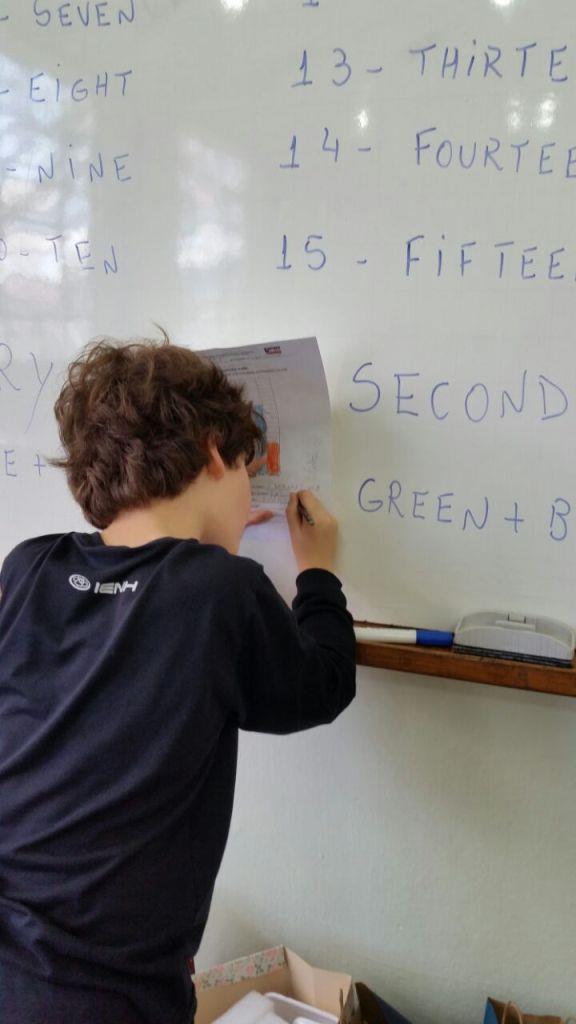 - SEVEN
- EiGHT
- NiNE
- TEN
13 - THiRTE
14 - FOURTEE
15 - FiFTEE
RY
E +
SECOND
GREEN + B
IENH